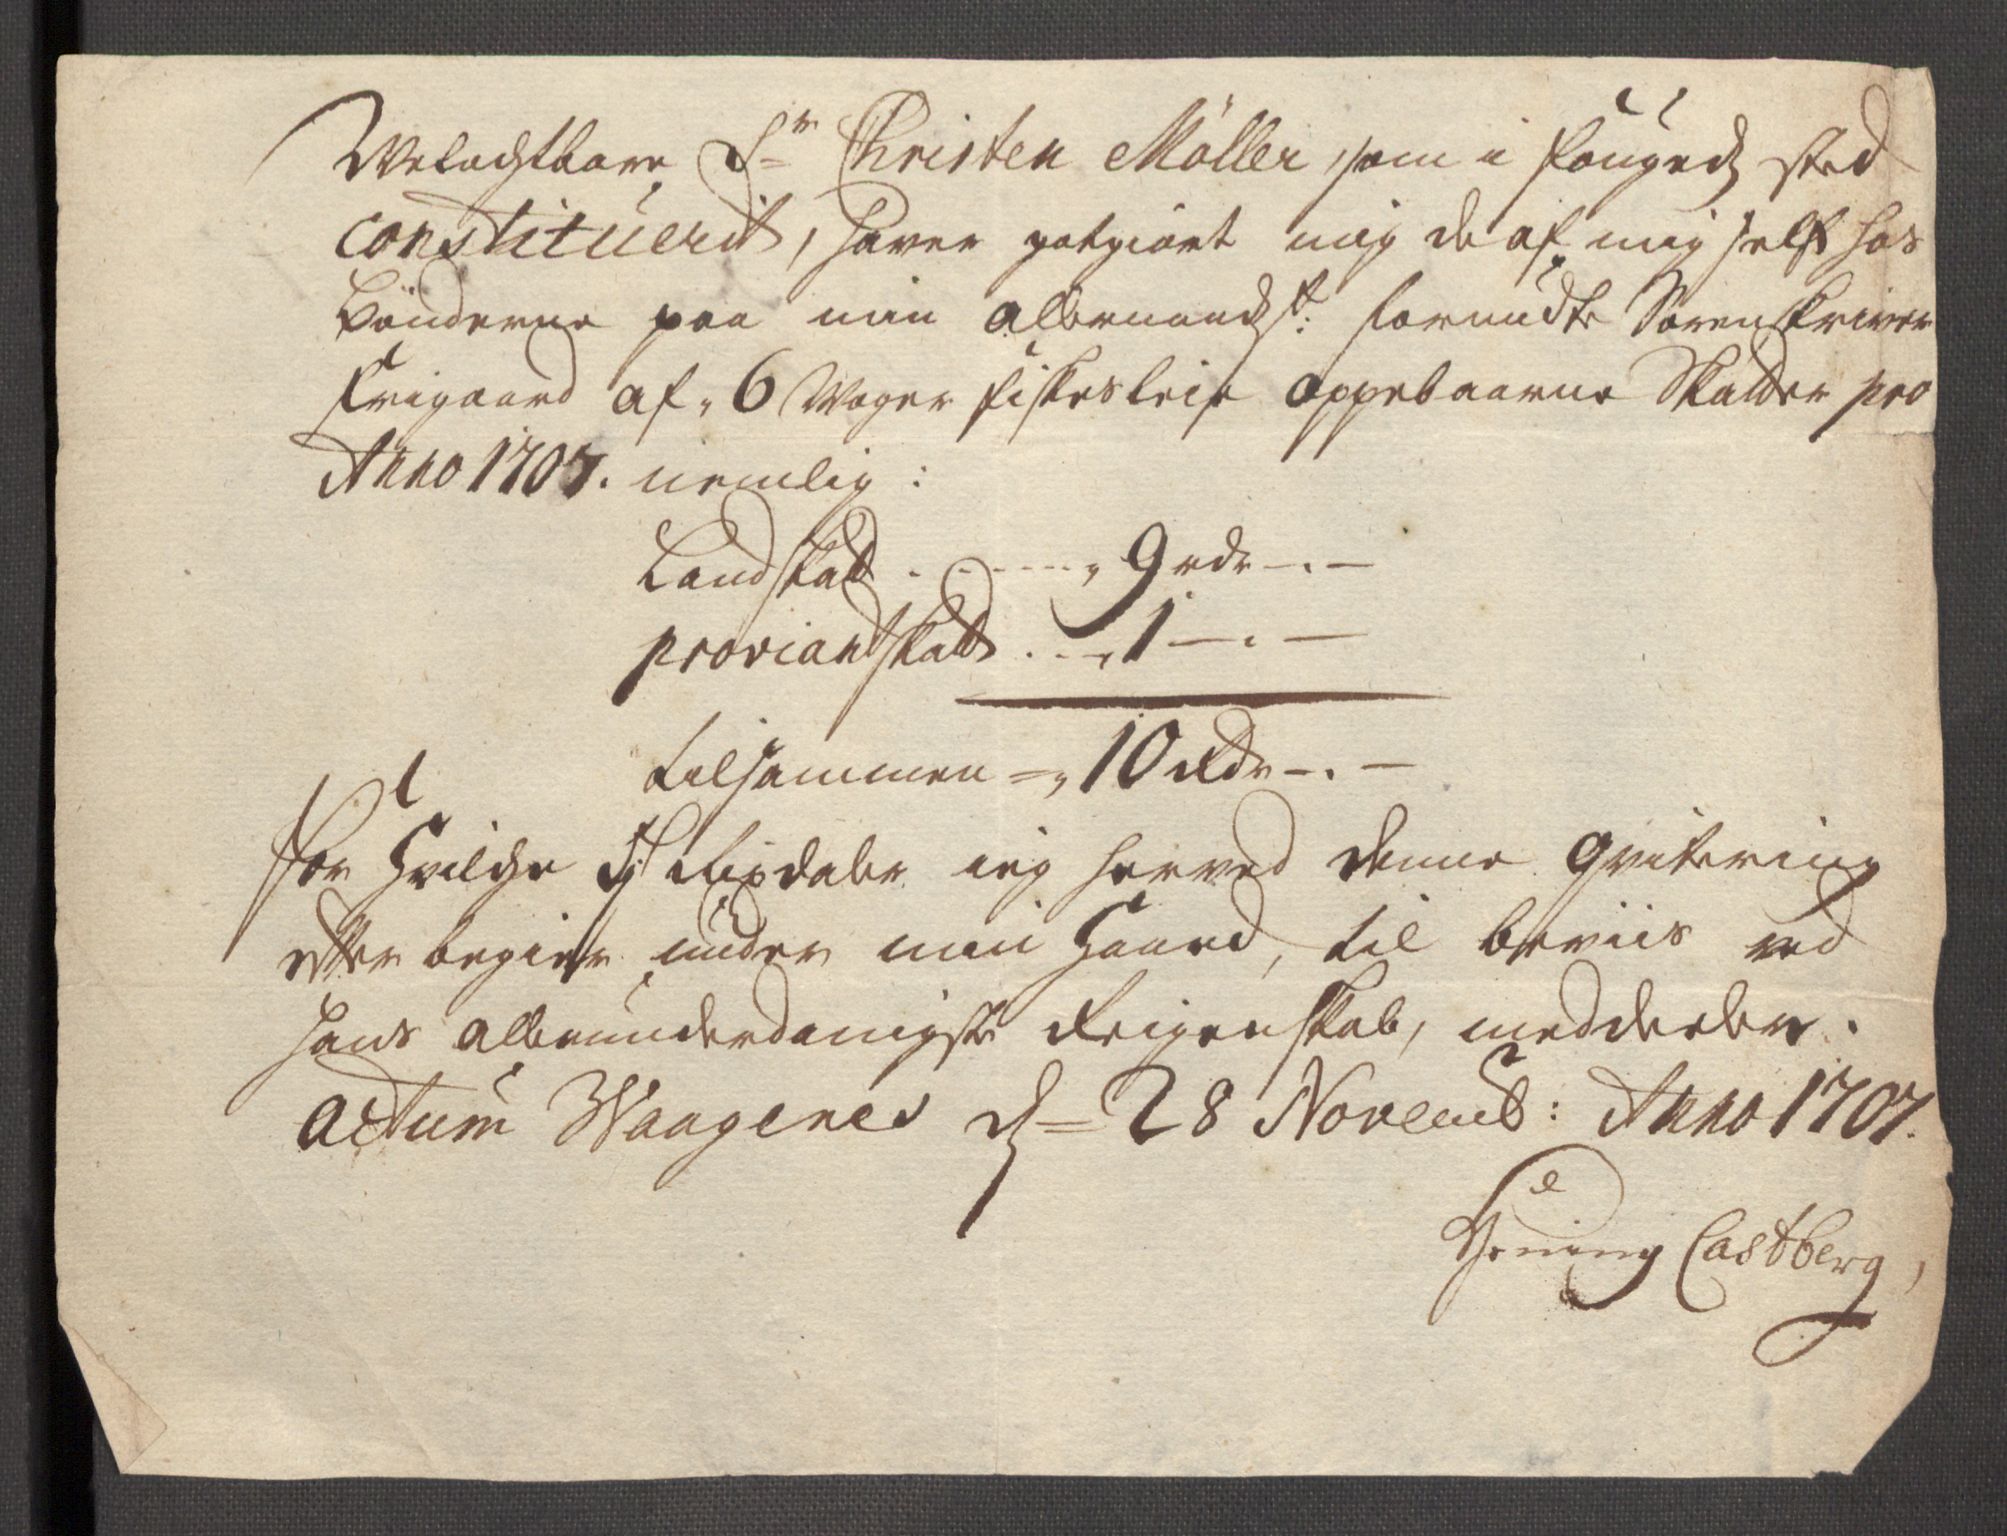 Welachtbare Sr Christen Möller, som i fougeds sted
constituerit, haver gotgiort mig de af mig self hos
Bönderne paa min allernaadst: forundte Sorenskriver
Frigaard af, 6 Woger fiskesleie oppebaarne Skatter pro
Anno 1707. nemlig:
Landskatt . . . . . . . , 9 rdr – . –
proviantskatt . . . , 1 – . –
tilsammen = , 10 Rdr – . –
for hvilche Rixdaler ieg herved denne qvitering
efter begier under min Haand, til beviis ved
hans allerunderdanigste Reigenskab, meddeeler.
Actum Waagenes d = 28 Novemb: Anno 1707.
Hening Castberg,